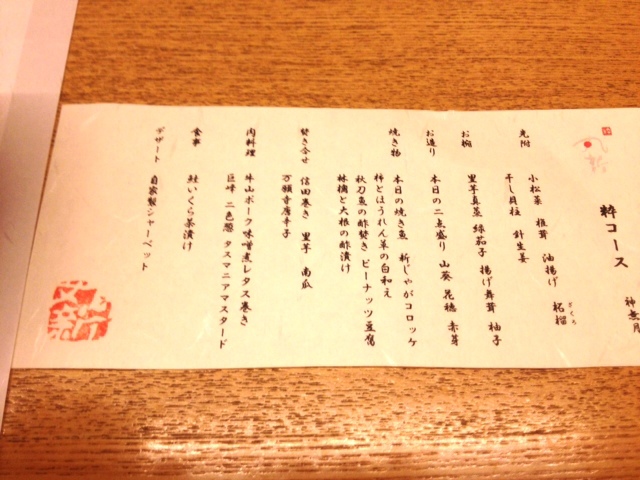 粋コース
神無月
先附
小松菜 椎茸 油揚げ 柘榴
ざくろ
干し貝柱 針生姜
お椀
里芋真蒸 緑茄子 揚げ舞茸 柚子
お造り
本日の二点盛り 山葵 花穂 赤芽
焼き物
本日の焼き魚 新じゃがコロッケ
柿とほうれん草の白和え
秋刀魚の酢〆 ピーナッツ豆腐
林檎と大根の酢漬け
焚き合せ
信田巻き 里芋 南瓜
万願寺唐辛子
肉料理
牛山ポーク味噌煮レタス巻き
巨峰 二色 タスマニアマスタード
食事
鮭いくら茶漬け
デザート
自家製シャーベット